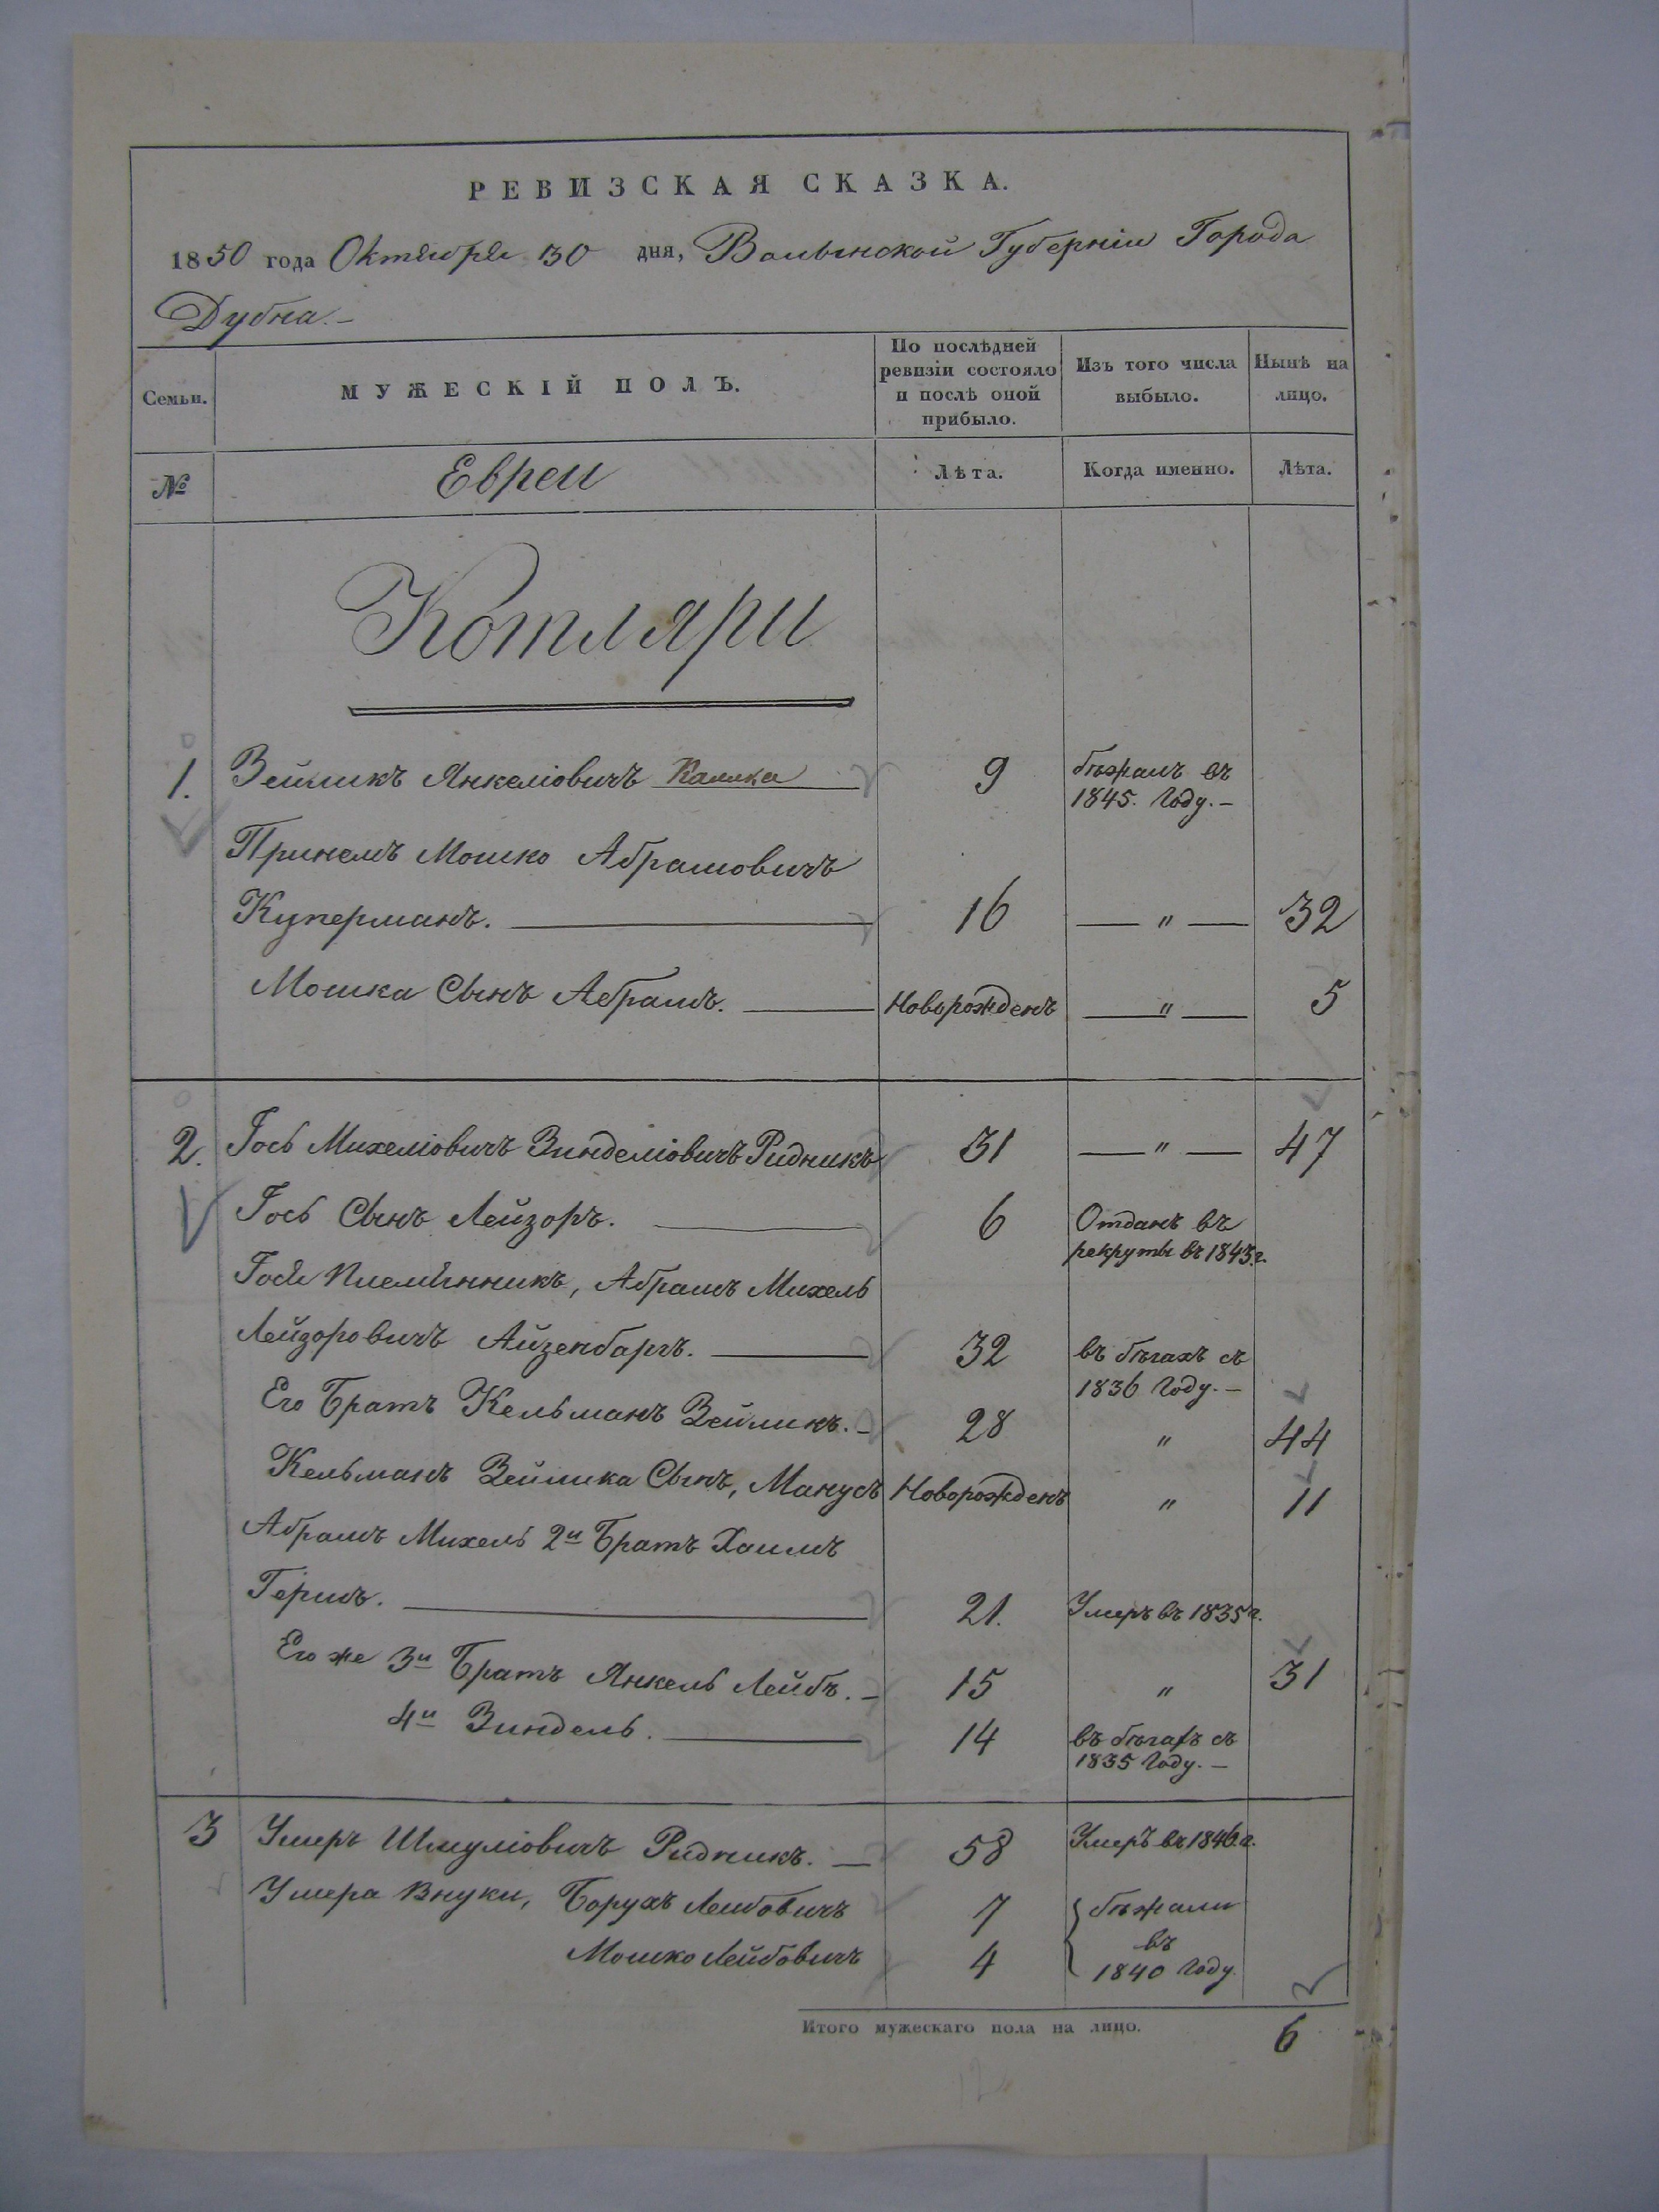 РЕВИЗСКАЯ СКАЗКА.
1850 года Октября 30 дня, Волынской Губерніи Города
Дубна.—
Семьи.
МУЖЕСКІЙ ПОЛЪ.
По послѣдней ревизіи состояло и послѣ оной прибыло.
Изъ того числа выбыло.
Нынѣ на лицо.
№ Евреи Лѣта. Когда именно. Лѣта.
Котляри
1. Зейликъ Янкеліовичъ 9 бѣжалъ въ
1845. Году.—
Принелъ Мошко Абрамовичъ
Куперманъ. 16 — " — 32
Мошка Сынъ Абрамъ. Новорожденъ — " — 5
2. Гось Михеліовичъ Зинделіовичъ Ридникъ 31 — " — 47
Гось Сынъ Лейзоръ. 6 Отданъ въ
рекруты въ 1843г.
Гося Племянникъ, Абрамъ Михель
Лейзоровичъ Айзенбаргъ. 32 въ бѣгахъ съ
1836 Году.—
Его Братъ Кельманъ Зейликъ.— 28 " 44
Кельманъ Зейлика Сынъ, Манусъ Новорожденъ " 11
Абрамъ Михель 2й Братъ Хаимъ
Гершъ. 21. Умеръ въ 1835г.
Его же 3й Братъ Янкель Лейбъ.— 15 " 31
4й Зиндель. 14 въ бѣгахъ съ
1835 Году.—
3 Умеръ Шмуліовичъ Ридникъ.— 58 Умеръ въ 1846.г.
Умера Внуки, Борухъ Лейбовичъ 7 бѣжали
въ
Мошко Лейбовичъ 4 1840 Году.
Итого мужескаго пола на лицо. 6